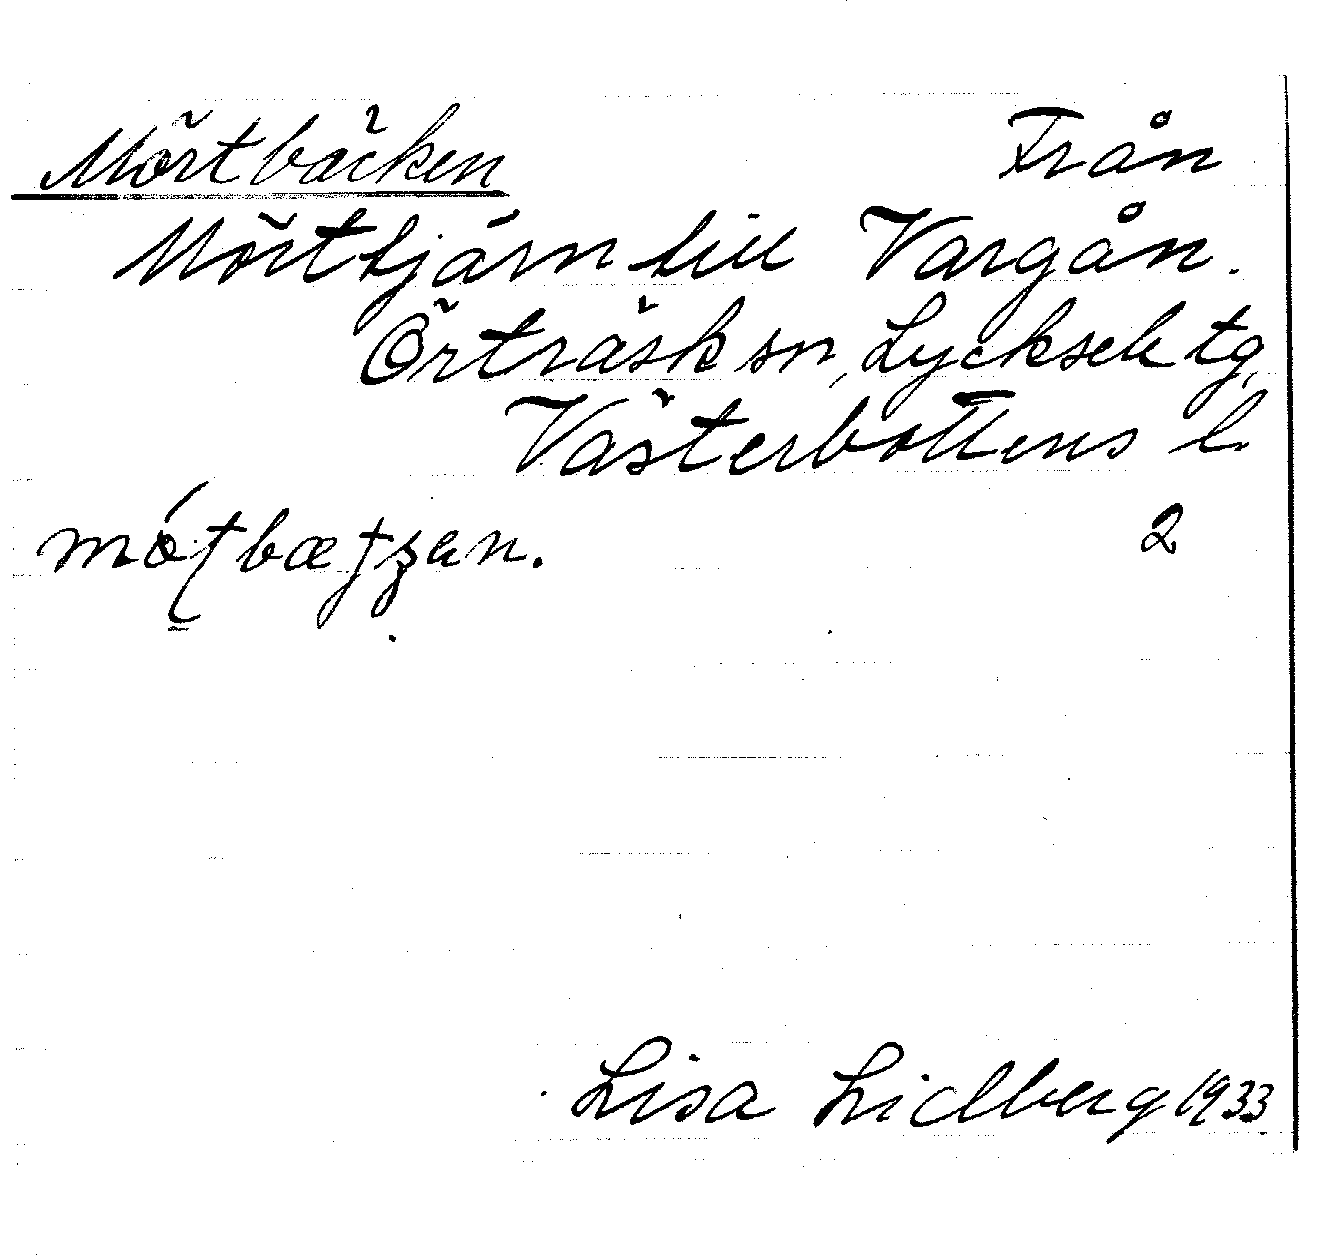 Mörtbäcken Från
Mörttjärn till Vargån.
Örträsk sn, Lycksele tg,
Västerbottens l.
2
Lisa Lidberg 1933